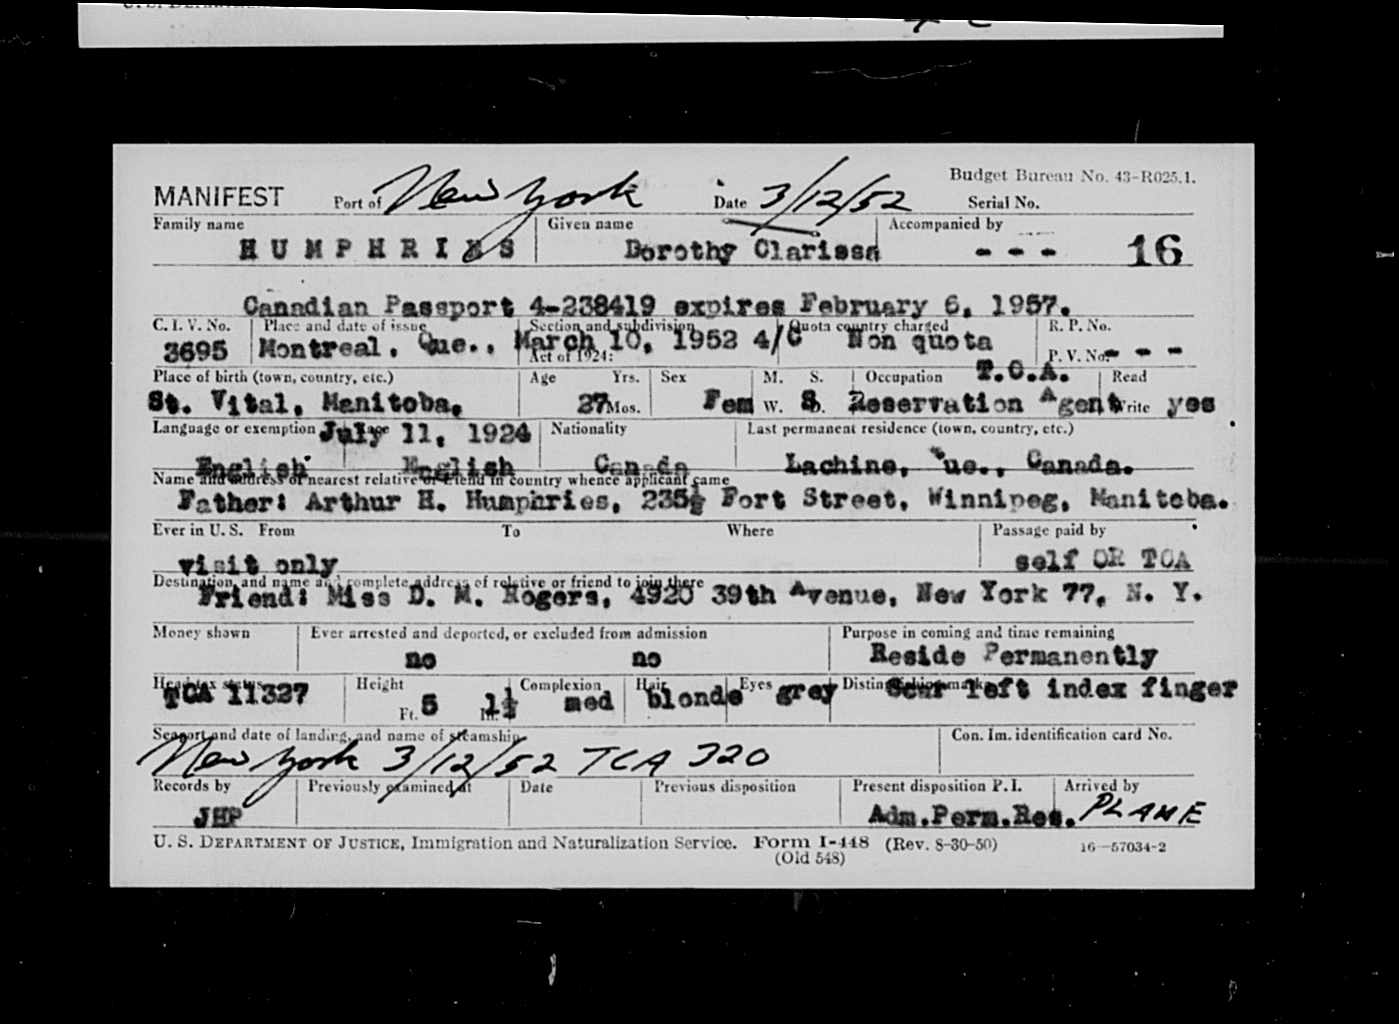 Budget Bureau No. 43-R025.1.
MANIFEST Port of New York Date 3/12/52 Serial No.
Family name Given name Accompanied by
H U M P H R I E S Dorothy Clarissa - - - 16
Canadian Passport 4-238419 expires February 6, 1957.
C. I. V. No. Place and date of issue Section and subdivision Quota country charged R. P. No.
3695 Montreal, Que., March 10, 1952 4/C Non quota
Act of 1924: P. V. No. - - -
Place of birth (town, country, etc.) Age Yrs. Sex M. S. Occupation T.C.A. Read
St. Vital, Manitoba, 27 Mos. Fem W. S D. Reservation Agent Write yes
Language or exemption July 11, 1924 Nationality Last permanent residence (town, country, etc.)
English English Canada Lachine, Que., Canada.
Name and address of nearest relative or friend in country whence applicant came
Father: Arthur H. Humphries, 235½ Fort Street, Winnipeg, Manitoba.
Ever in U. S. From To Where Passage paid by
visit only self OR TCA
Destination, and name and complete address of relative or friend to join there
Friend: Miss D. M. Rogers, 4920 39th Avenue, New York 77, N. Y.
Money shown Ever arrested and deported, or excluded from admission Purpose in coming and time remaining
no no Reside Permanently
Head tax status Height Complexion Hair Eyes Distinguishing marks
TCA 11327 Ft. 5 In. 1½ med blonde grey Scar left index finger
Seaport and date of landing, and name of steamship Con. Im. identification card No.
New York 3/12/52 TCA 320
Records by Previously examined at Date Previous disposition Present disposition P. I. Arrived by
JHP Adm.Perm.Res. PLANE
U. S. DEPARTMENT OF JUSTICE, Immigration and Naturalization Service. Form I-448 (Rev. 8-30-50) 16—57034-2
(Old 548)